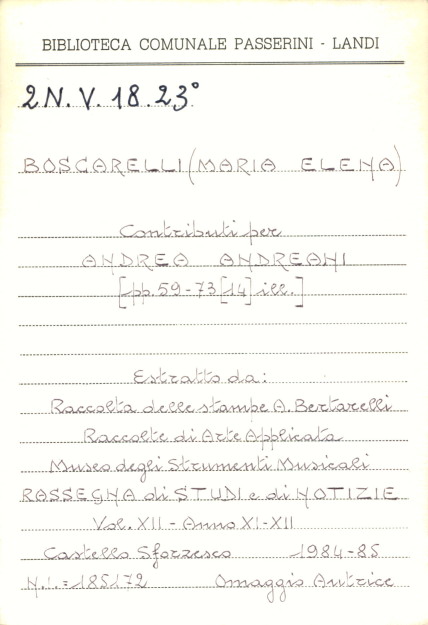 BIBLIOTECA COMUNALE PASSERINI - LANDI
2N.V.18.23°
BOSCARELLI (MARIA ELENA)
Contributi per
ANDREA ANDREANI
[pp. 59-73 [14] ill.]
Estratto da:
Raccolta delle stampe A. Bertarelli
Raccolte di Arte Applicata
Museo degli Strumenti Musicali
RASSEGNA di STUDI e di NOTIZIE
Vol. XII - Anno XI-XII
Castello Sforzesco 1984-85
N.I.=185172 Omaggio Autrice